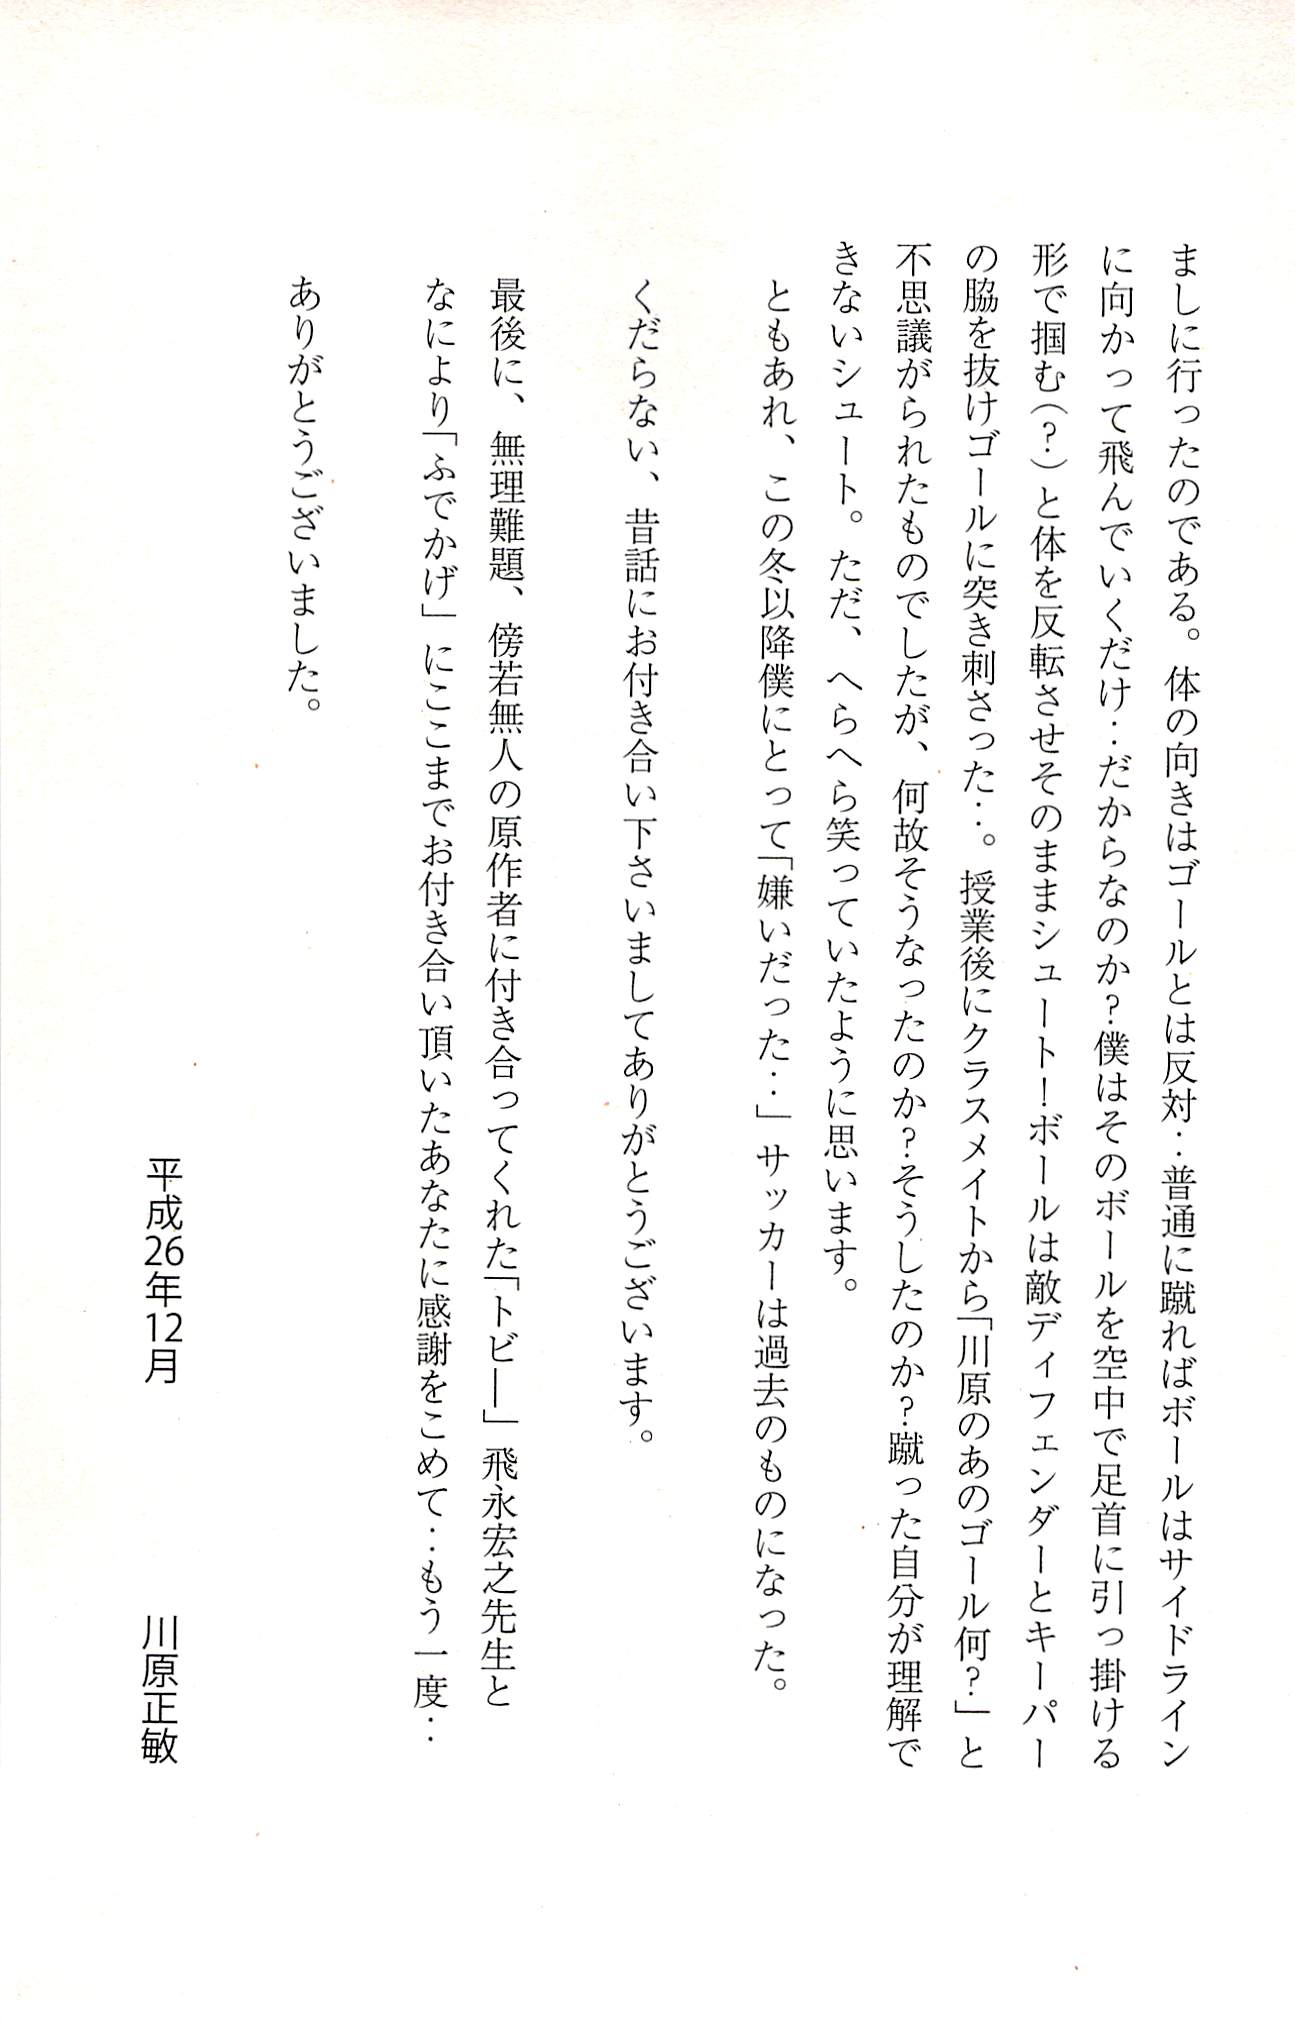 ましに行ったのである。体の向きはゴールとは反対‥普通に蹴ればボールはサイドライン
に向かって飛んでいくだけ‥だからなのか？僕はそのボールを空中で足首に引っ掛ける
形で掴む（？）と体を反転させそのままシュート！ボールは敵ディフェンダーとキーパー
の脇を抜けゴールに突き刺さった‥。授業後にクラスメイトから「川原のあのゴール何？」と
不思議がられたものでしたが、何故そうなったのか？そうしたのか？蹴った自分が理解で
きないシュート。ただ、へらへら笑っていたように思います。
ともあれ、この冬以降僕にとって「嫌いだった‥」サッカーは過去のものになった。
くだらない、昔話にお付き合い下さいましてありがとうございます。
最後に、無理難題、傍若無人の原作者に付き合ってくれた「トビー」飛永宏之先生と
なにより「ふでかげ」にここまでお付き合い頂いたあなたに感謝をこめて‥もう一度‥
ありがとうございました。
平成26年12月　川原正敏